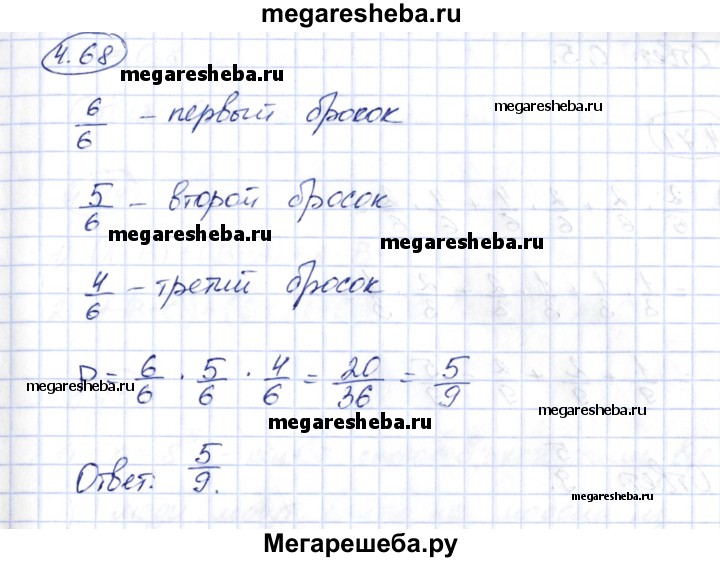 megaresheba.ru
4.68
megaresheba.ru
6/6 – первый бросок
megaresheba.ru
5/6 – второй бросок
megaresheba.ru
megaresheba.ru
4/6 – третий бросок
P = 6/6 · 5/6 · 4/6 = 20/36 = 5/9
megaresheba.ru
megaresheba.ru
megaresheba.ru
Ответ: 5/9.
megaresheba.ru
megaresheba.ru
Мегарешеба.ру